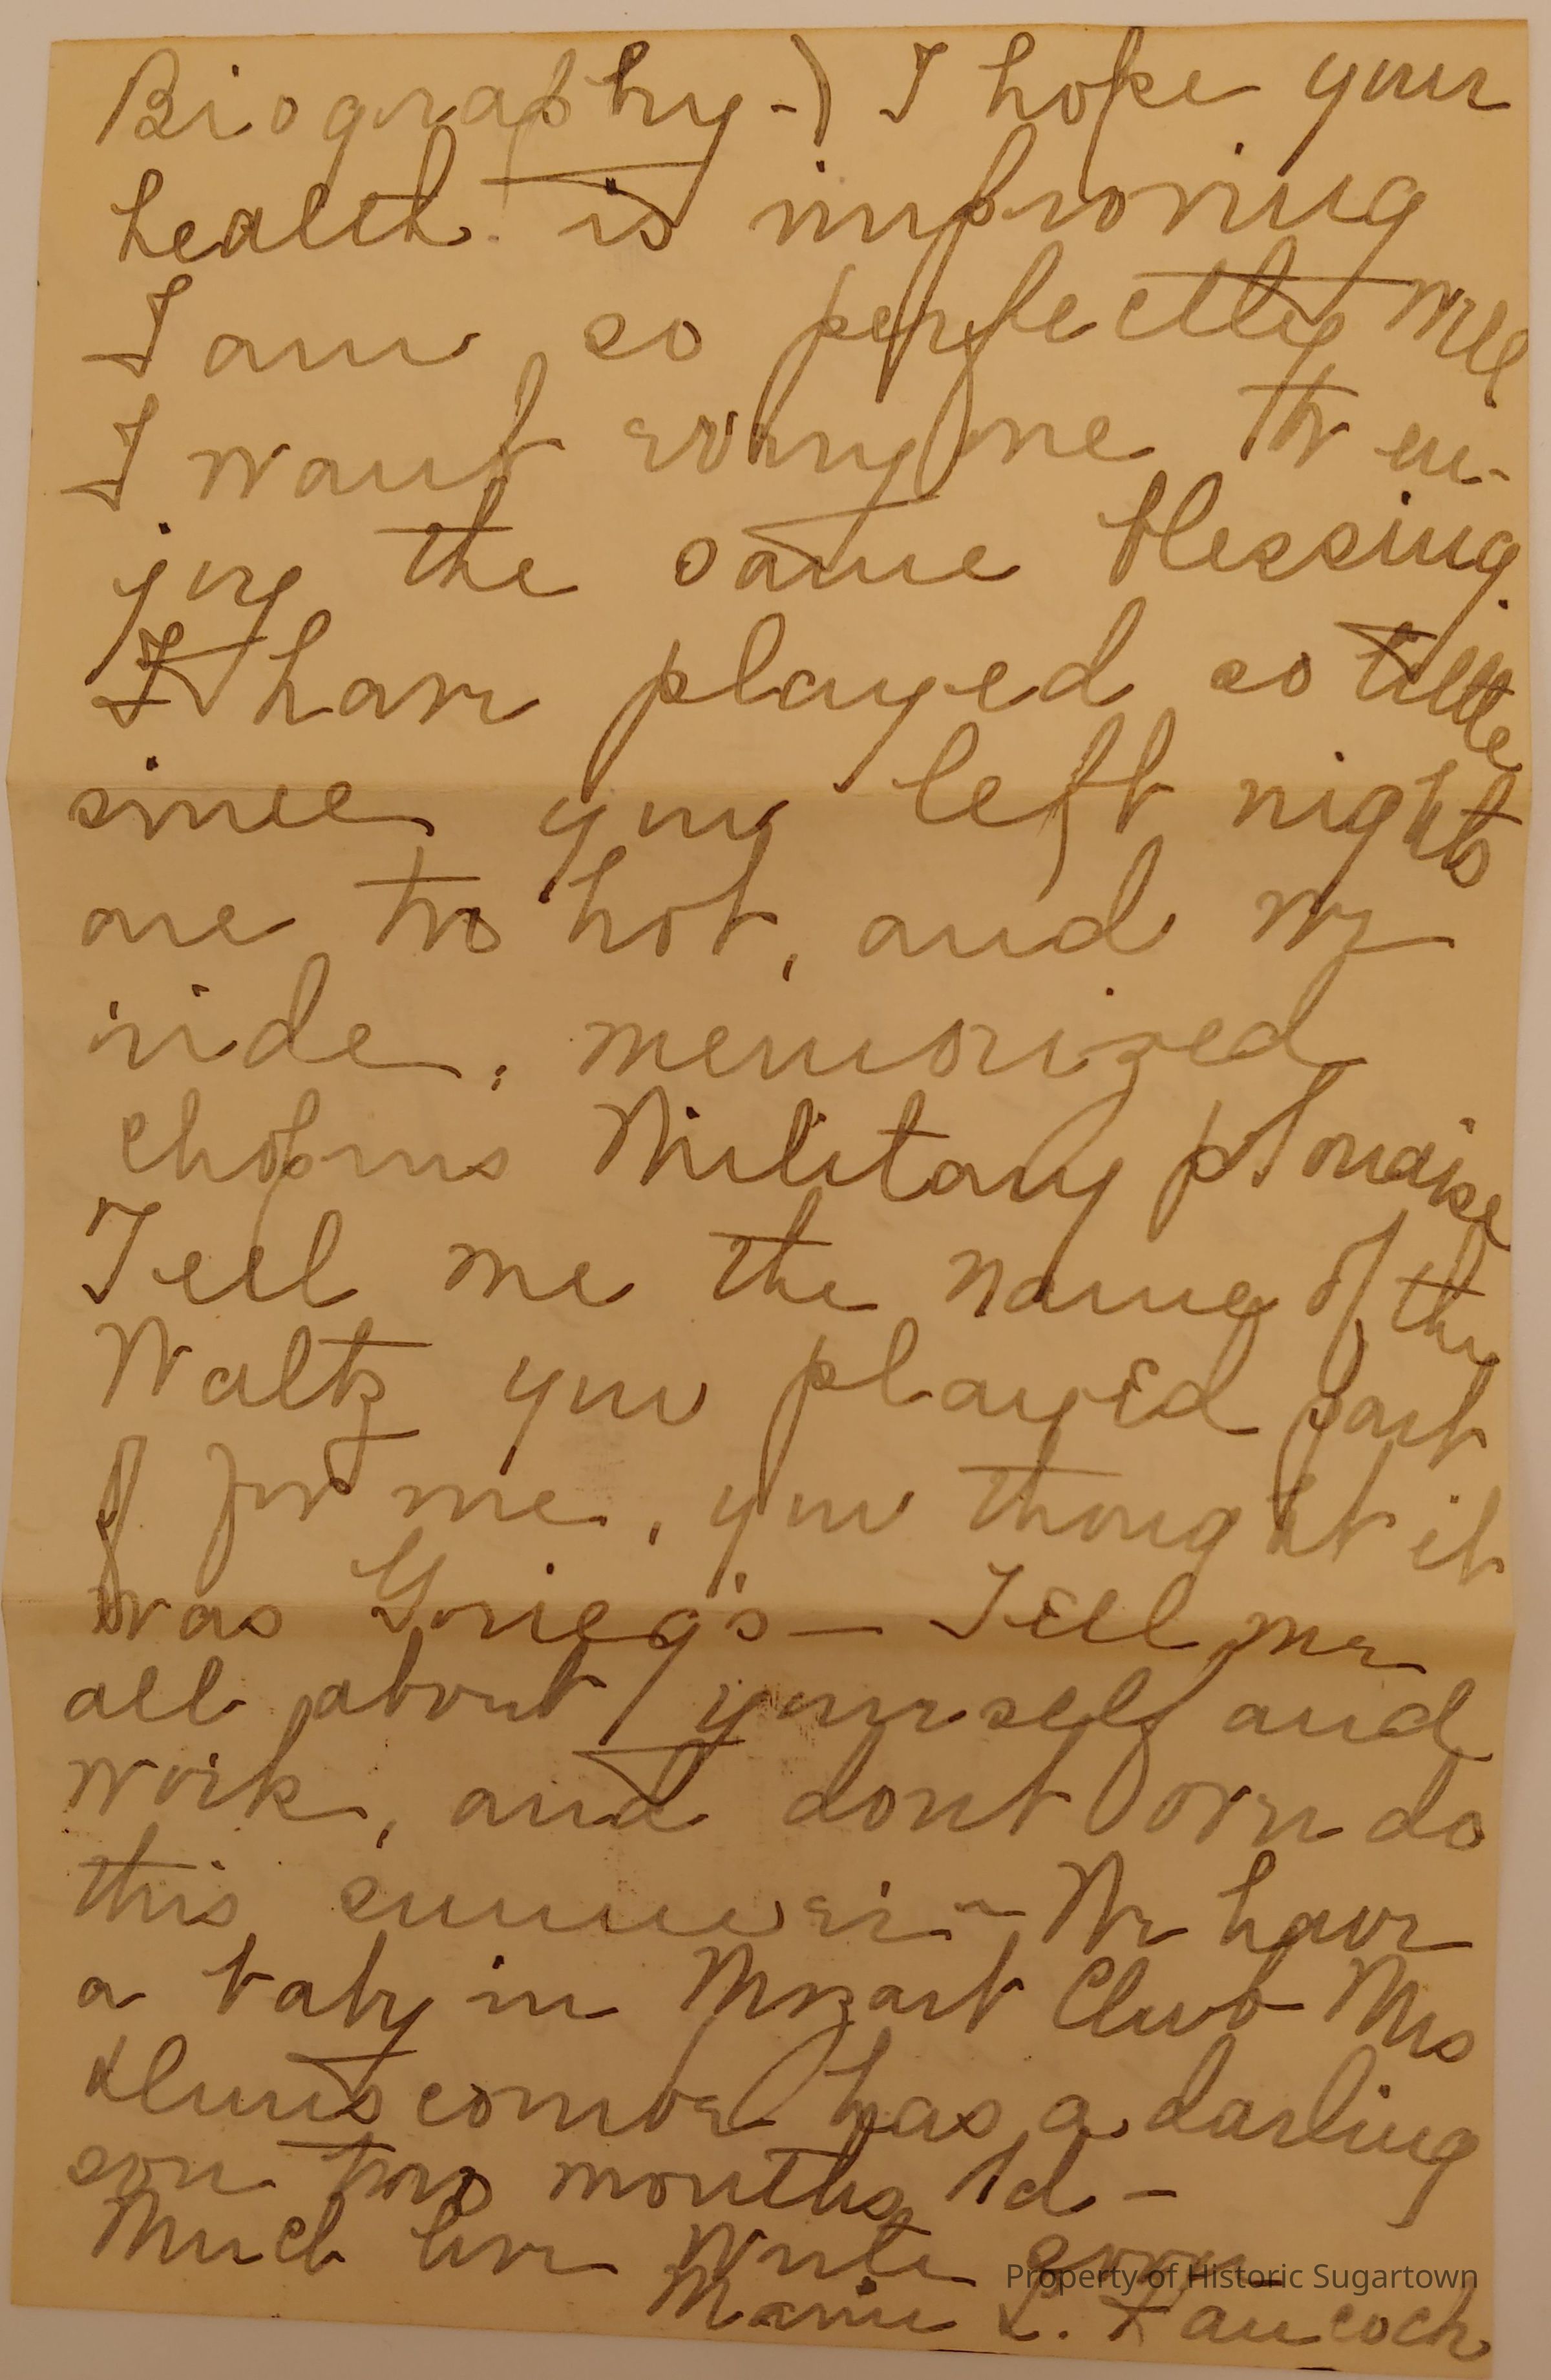 Biography-) I hope your
health is improving
I am so perfectly well
I want everyone to en-
joy the same blessing.
I have played so little
since you left nights
are too hot, and we
ride, memorized
Chopins Military polonaise
Tell me the name of the
Waltz you played part
of for me, you thought it
was Grieg's — Tell me
all about yourself and
work, and dont over do
this summer — We have
a baby in Mozart Club Mrs
has a darling
son two months old —
Much love Write soon
Mamie L. Hancock
Property of Historic Sugartown